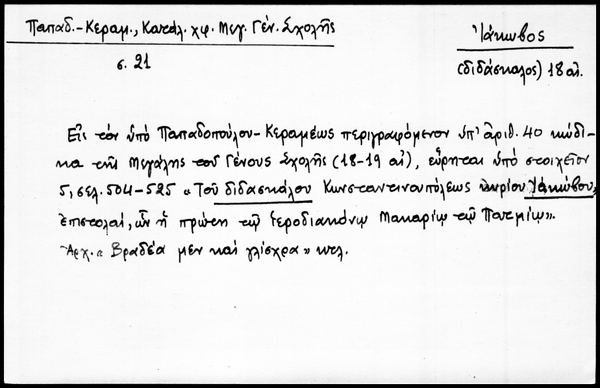 Παπαδ.-Κεραμ., Κατάλ. χφ. Μεγ. Γέν. Σχολῆς
σ. 21
Ἰάκωβος
(διδάσκαλος) 18 αἰ.
Εἰς τὸν ὑπὸ Παπαδοπούλου-Κεραμέως περιγραφόμενον ὑπ' ἀριθ. 40 κώδι-
κα τῆς Μεγάλης τοῦ Γένους Σχολῆς (18-19 αἰ), εὕρηται ὑπὸ στοιχεῖον
5, σελ. 504-525 « Τοῦ διδασκάλου Κωνσταντινουπόλεως κυρίου Ἰακώβου,
ἐπιστολαί, ὧν ἡ πρώτη τῷ ἱεροδιακόνῳ Μακαρίῳ τῷ Πατμίῳ».
Ἀρχ. « Βραδέα μὲν καὶ γλίσχρα » κτλ.